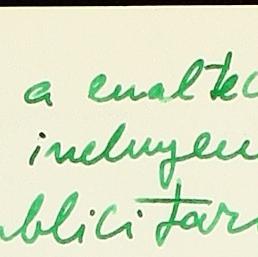 a enaltec
incluyen
blicitar